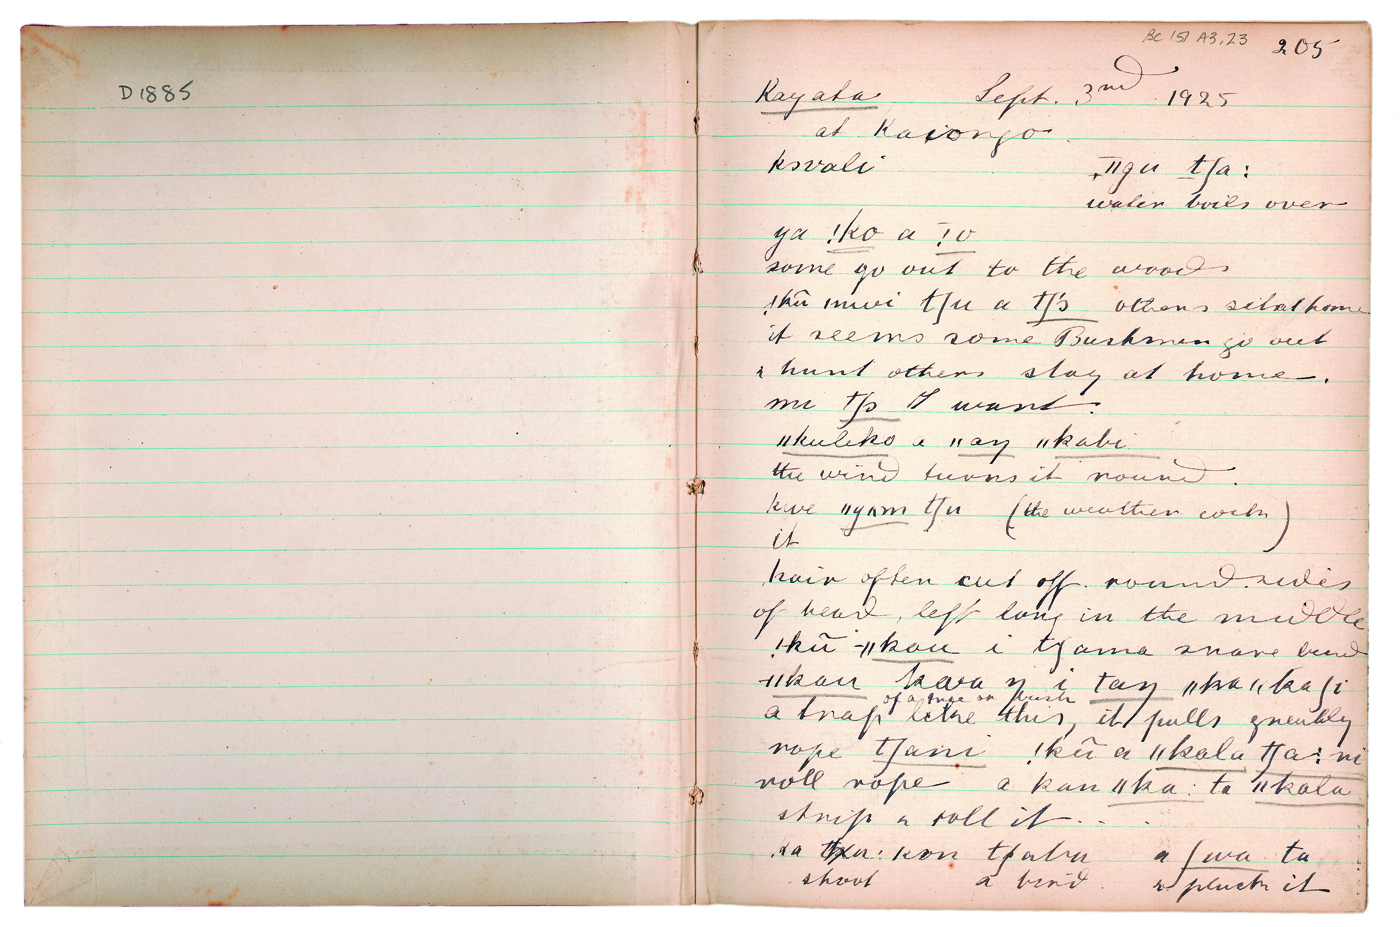 D1885
BC 151 A3,23 205
Kayata Sept. 3nd 1925
at Kaiongo
ksvali ǁgu tʃa:
water boils over
ya !ko a !o
some go out to the woods
!kũ tʃu a tʃ's others sit at home
it seems some Bushmen go out
& hunt others stay at home.
mi tʃs I want.
ǁkuleko a ǁaŋ ǁkabi
the wind turns it round.
kwe tʃu (the weather cock)
it
hair often cut off round sides
of head, left long in the middle
!kũ ǁkau i tʃama snare bird
ǁkau i taŋ ǁka ǁkaʃi
of a tree or bush
a trap like this, it pulls quickly
rope tʃani !kũ a ǁkala tʃa: ni
roll rope a kau ǁka: ta ǁkala
strip & roll it . . .
kon tʃabu a ʃwa ta
shoot a bird & pluck it